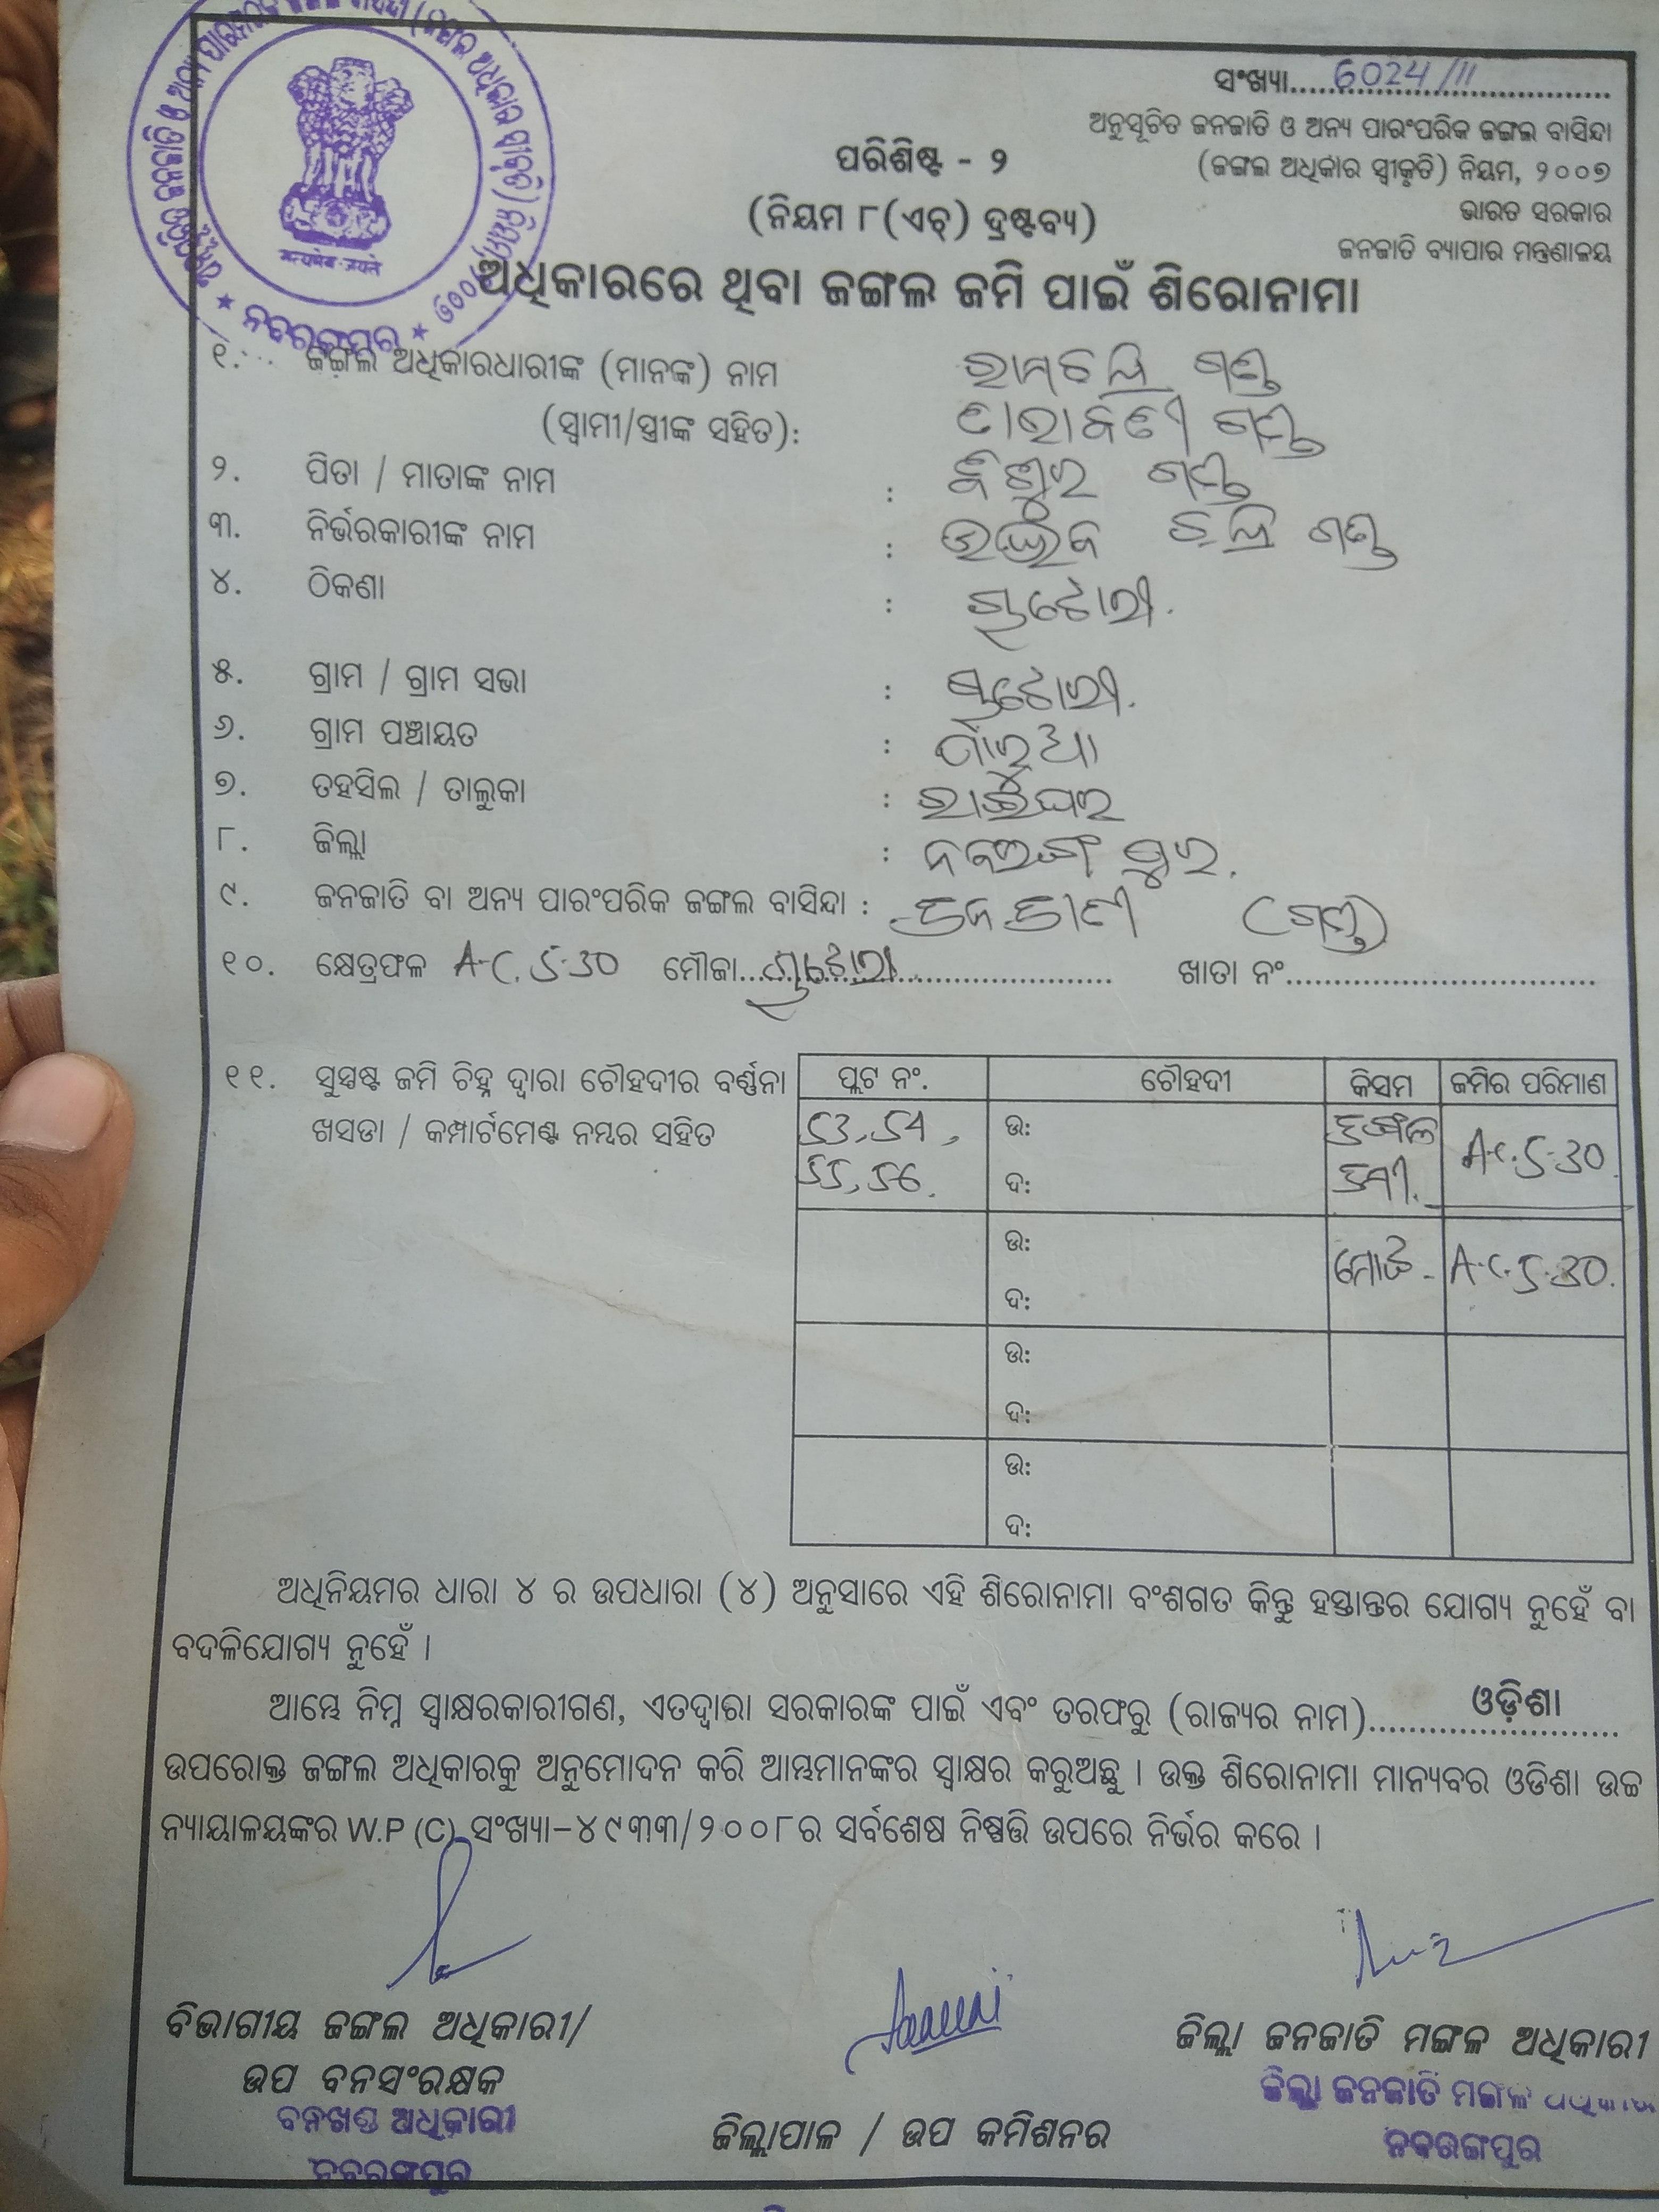 ସଂଖ୍ୟା.....6024/11.....
ଅନୁସୂଚିତ ଜନଜାତି ଓ ଅନ୍ୟ ପାରଂପରିକ ଜଙ୍ଗଲ ବାସିନ୍ଦା
(ଜଙ୍ଗଲ ଅଧିକାର ସ୍ୱୀକୃତି) ନିୟମ, ୨୦୦୭
ଭାରତ ସରକାର
ଜନଜାତି ବ୍ୟାପାର ମନ୍ତ୍ରଣାଳୟ
ପରିଶିଷ୍ଟ - ୨
(ନିୟମ ୮(ଏଚ୍) ଦ୍ରଷ୍ଟବ୍ୟ)
ଅଧିକାରରେ ଥିବା ଜଙ୍ଗଲ ଜମି ପାଇଁ ଶିରୋନାମା
ନବରଙ୍ଗପୁର
୧. ଜଙ୍ଗଲ ଅଧିକାରଧାରୀଙ୍କ (ମାନଙ୍କ) ନାମ ଗଣ୍ଡ
(ସ୍ୱାମୀ/ସ୍ତ୍ରୀଙ୍କ ସହିତ): ଗଣ୍ଡ
୨. ପିତା / ମାତାଙ୍କ ନାମ : ଗଣ୍ଡ
୩. ନିର୍ଭରକାରୀଙ୍କ ନାମ : ଗଣ୍ଡ
୪. ଠିକଣା :
୫. ଗ୍ରାମ / ଗ୍ରାମ ସଭା :
୬. ଗ୍ରାମ ପଞ୍ଚାୟତ :
୭. ତହସିଲ / ତାଲୁକା : ରାଇଘର
୮. ଜିଲ୍ଲା : ନବରଙ୍ଗ ପୁର.
୯. ଜନଜାତି ବା ଅନ୍ୟ ପାରଂପରିକ ଜଙ୍ଗଲ ବାସିନ୍ଦା : (ଗଣ୍ଡ)
୧୦. କ୍ଷେତ୍ରଫଳ A.C. 5.30 ମୌଜା..... ଖାତା ନଂ.....
୧୧. ସୁସ୍ପଷ୍ଟ ଜମି ଚିହ୍ନ ଦ୍ୱାରା ଚୌହଦୀର ବର୍ଣ୍ଣନା
ଖସଡା / କମ୍ପାର୍ଟମେଣ୍ଟ ନମ୍ବର ସହିତ
ପ୍ଲଟ ନଂ. ଚୌହଦୀ କିସମ ଜମିର ପରିମାଣ
53, 54, ଉ: ଜଙ୍ଗଲ A.C. 5.30
55, 56. ଦ: ଜମୀ.
ଉ: ମୋଟ - A.C. 5.30.
ଦ:
ଉ:
ଦ:
ଉ:
ଦ:
ଅଧିନିୟମର ଧାରା ୪ ର ଉପଧାରା (୪) ଅନୁସାରେ ଏହି ଶିରୋନାମା ବଂଶଗତ କିନ୍ତୁ ହସ୍ତାନ୍ତର ଯୋଗ୍ୟ ନୁହେଁ ବା
ବଦଳିଯୋଗ୍ୟ ନୁହେଁ ।
ଆମ୍ଭେ ନିମ୍ନ ସ୍ୱାକ୍ଷରକାରୀଗଣ, ଏତଦ୍ୱାରା ସରକାରଙ୍କ ପାଇଁ ଏବଂ ତରଫରୁ (ରାଜ୍ୟର ନାମ).....ଓଡ଼ିଶା.....
ଉପରୋକ୍ତ ଜଙ୍ଗଲ ଅଧିକାରକୁ ଅନୁମୋଦନ କରି ଆମ୍ଭମାନଙ୍କର ସ୍ୱାକ୍ଷର କରୁଅଛୁ । ଉକ୍ତ ଶିରୋନାମା ମାନ୍ୟବର ଓଡିଶା ଉଚ୍ଚ
ନ୍ୟାୟାଳୟଙ୍କର W.P (C) ସଂଖ୍ୟା-୪୯୩୩/୨୦୦୮ର ସର୍ବଶେଷ ନିଷ୍ପତ୍ତି ଉପରେ ନିର୍ଭର କରେ ।
ବିଭାଗୀୟ ଜଙ୍ଗଲ ଅଧିକାରୀ/
ଉପ ବନସଂରକ୍ଷକ
ବନଖଣ୍ଡ ଅଧିକାରୀ
ନବରଙ୍ଗପୁର
ଜିଲ୍ଲାପାଳ / ଉପ କମିଶନର
ଜିଲ୍ଲା ଜନଜାତି ମଙ୍ଗଳ ଅଧିକାରୀ
ଜିଲ୍ଲା ଜନଜାତି ମଙ୍ଗଳ
ନବରଙ୍ଗପୁର